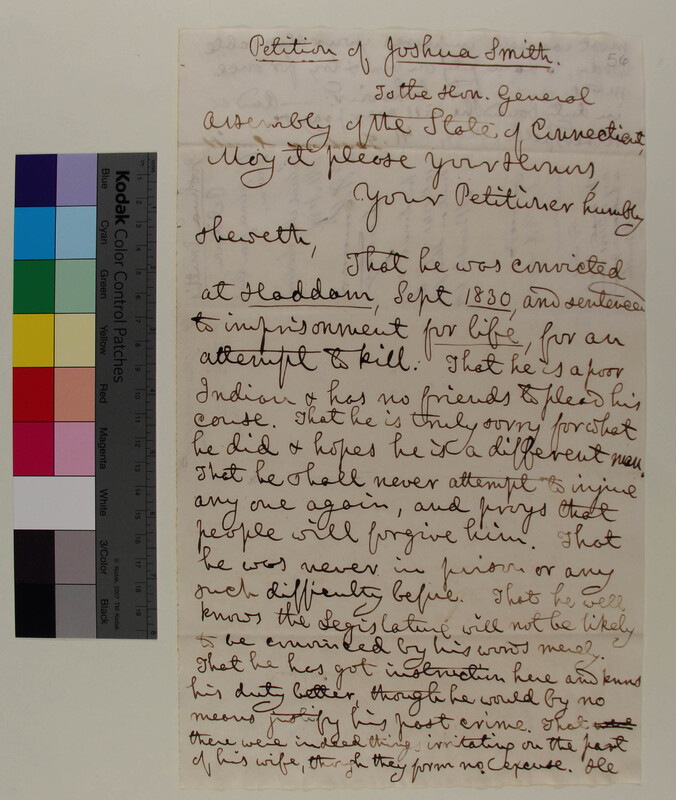 Petition of Joshua Smith.
56
To the Hon. General
Assembly of the State of Connecticut,
May it please your Honors,
Your Petitioner humbly
sheweth,
That he was convicted
at Haddam, Sept 1830, and sentenced
to imprisonment for life, for an
attempt to kill. That he is a poor
Indian & has no friends to plead his
cause. That he is truly sorry for what
he did & hopes he is a different man.
That he shall never attempt to injure
any one again, and prays that
people will forgive him. That
he was never in prison or any
such difficulty before. That he well
knows the Legislature will not be likely
to be convinced by his words merely.
That he has got instruction here and knows
his duty better, though he would by no
means justify his past crime. That were
there were indeed things irritating on the part
of his wife, though they form no excuse. He
Kodak Color Control Patches
Blue
Cyan
Green
Yellow
Red
Magenta
White
3/Color
Black
© Kodak, 2007 TM: Kodak